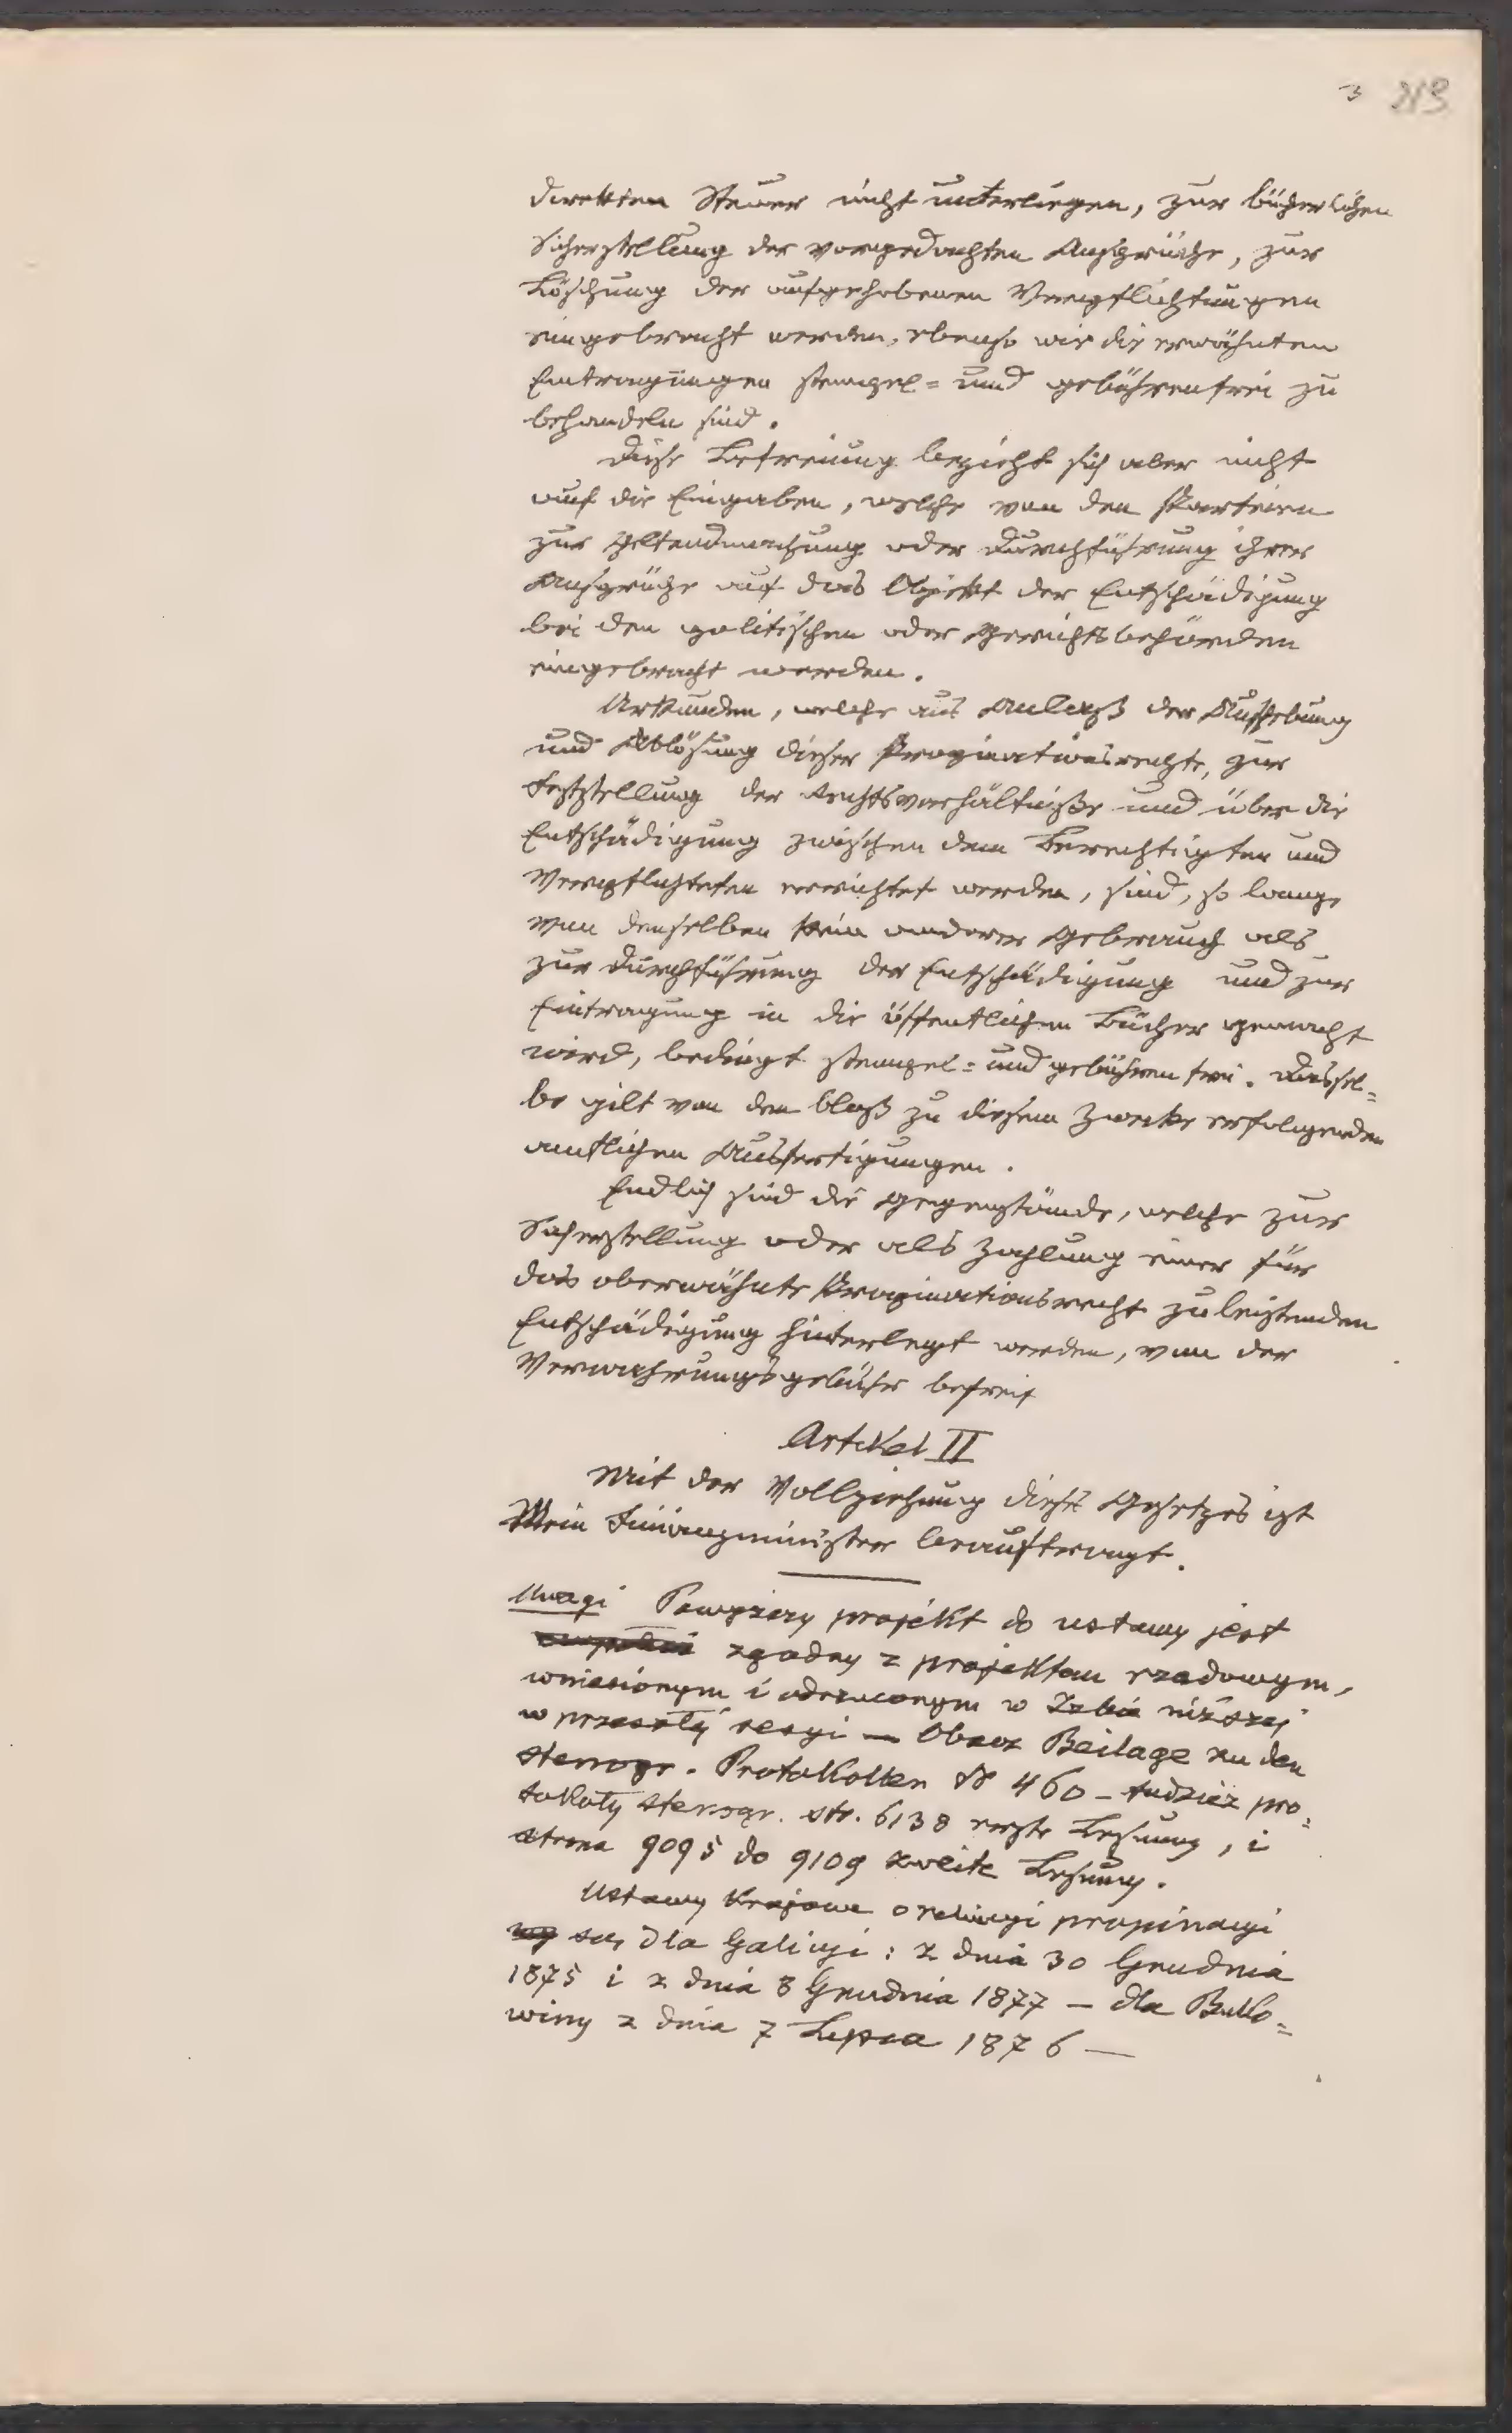 3 213
direkten Steuer nicht unterliegen, zur bücherlichen
Sicherstellung der vorgedachten Ansprüche, zur
Löschung der aufgehobenen Verpflichtungen
eingebracht werden, ebenso wie die erwähnten
Eintragungen stempel= und gebührenfrei zu
behandeln sind.
Diese Befreiung bezieht sich aber nicht
auf die Eingaben, welche von den Parteien
zur Geltendmachung oder Durchführung ihrer
Ansprüche auf das Objekt der Entschädigung
bei den politischen oder Gerichtsbehörden
eingebracht werden.
Urkunden, welche aus Anlaß der Aufhebung
und Ablösung dieser Propinationsrechte, zur
Feststellung der Rechtsverhältniße und über die
Entschädigung zwischen dem Berechtigten und
Verpflichteten errichtet werden, sind, so lange
von denselben kein anderer Gebrauch als
zur Durchführung der Entschädigung und zur
Eintragung in die öffentlichen Bücher gemacht
wird, bedingt stempel= und gebührenfrei. Dassel=
be gilt von den bloß zu diesem Zwecke erfolgenden
amtlichen Ausfertigungen.
Endlich sind die Gegenstände, welche zur
Sicherstellung oder als Zahlung einer für
das oberwähnte Propinationsrecht zu leistenden
Entschädigung hinterlegt werden, von der
Verwahrungsgebühr befreit
Artikel II
Mit der Vollziehung dieses Gesetzes ist
Mein Finanzminister beauftragt.
Uwagi Powyższy projekt do ustawy jest
zgodny z projektem rządowym,
wniesionym i odrzuconym w Izbie niższej
w przeszłéj sesyi — Obacz Beilage zu den
stenogr. Protokollen N 460 – tudzież pro=
tokoły stenogr. str. 6138 erste Lesung, i
strona 9095 do 9109 zweite Lesung.
Ustawy krajowe o relucyi propinacyi
są, dla Galicyi: z dnia 30 Grudnia
1875 i z dnia 8 Grudnia 1877 — dla Buko=
winy z dnia 7 Lipca 1876 —